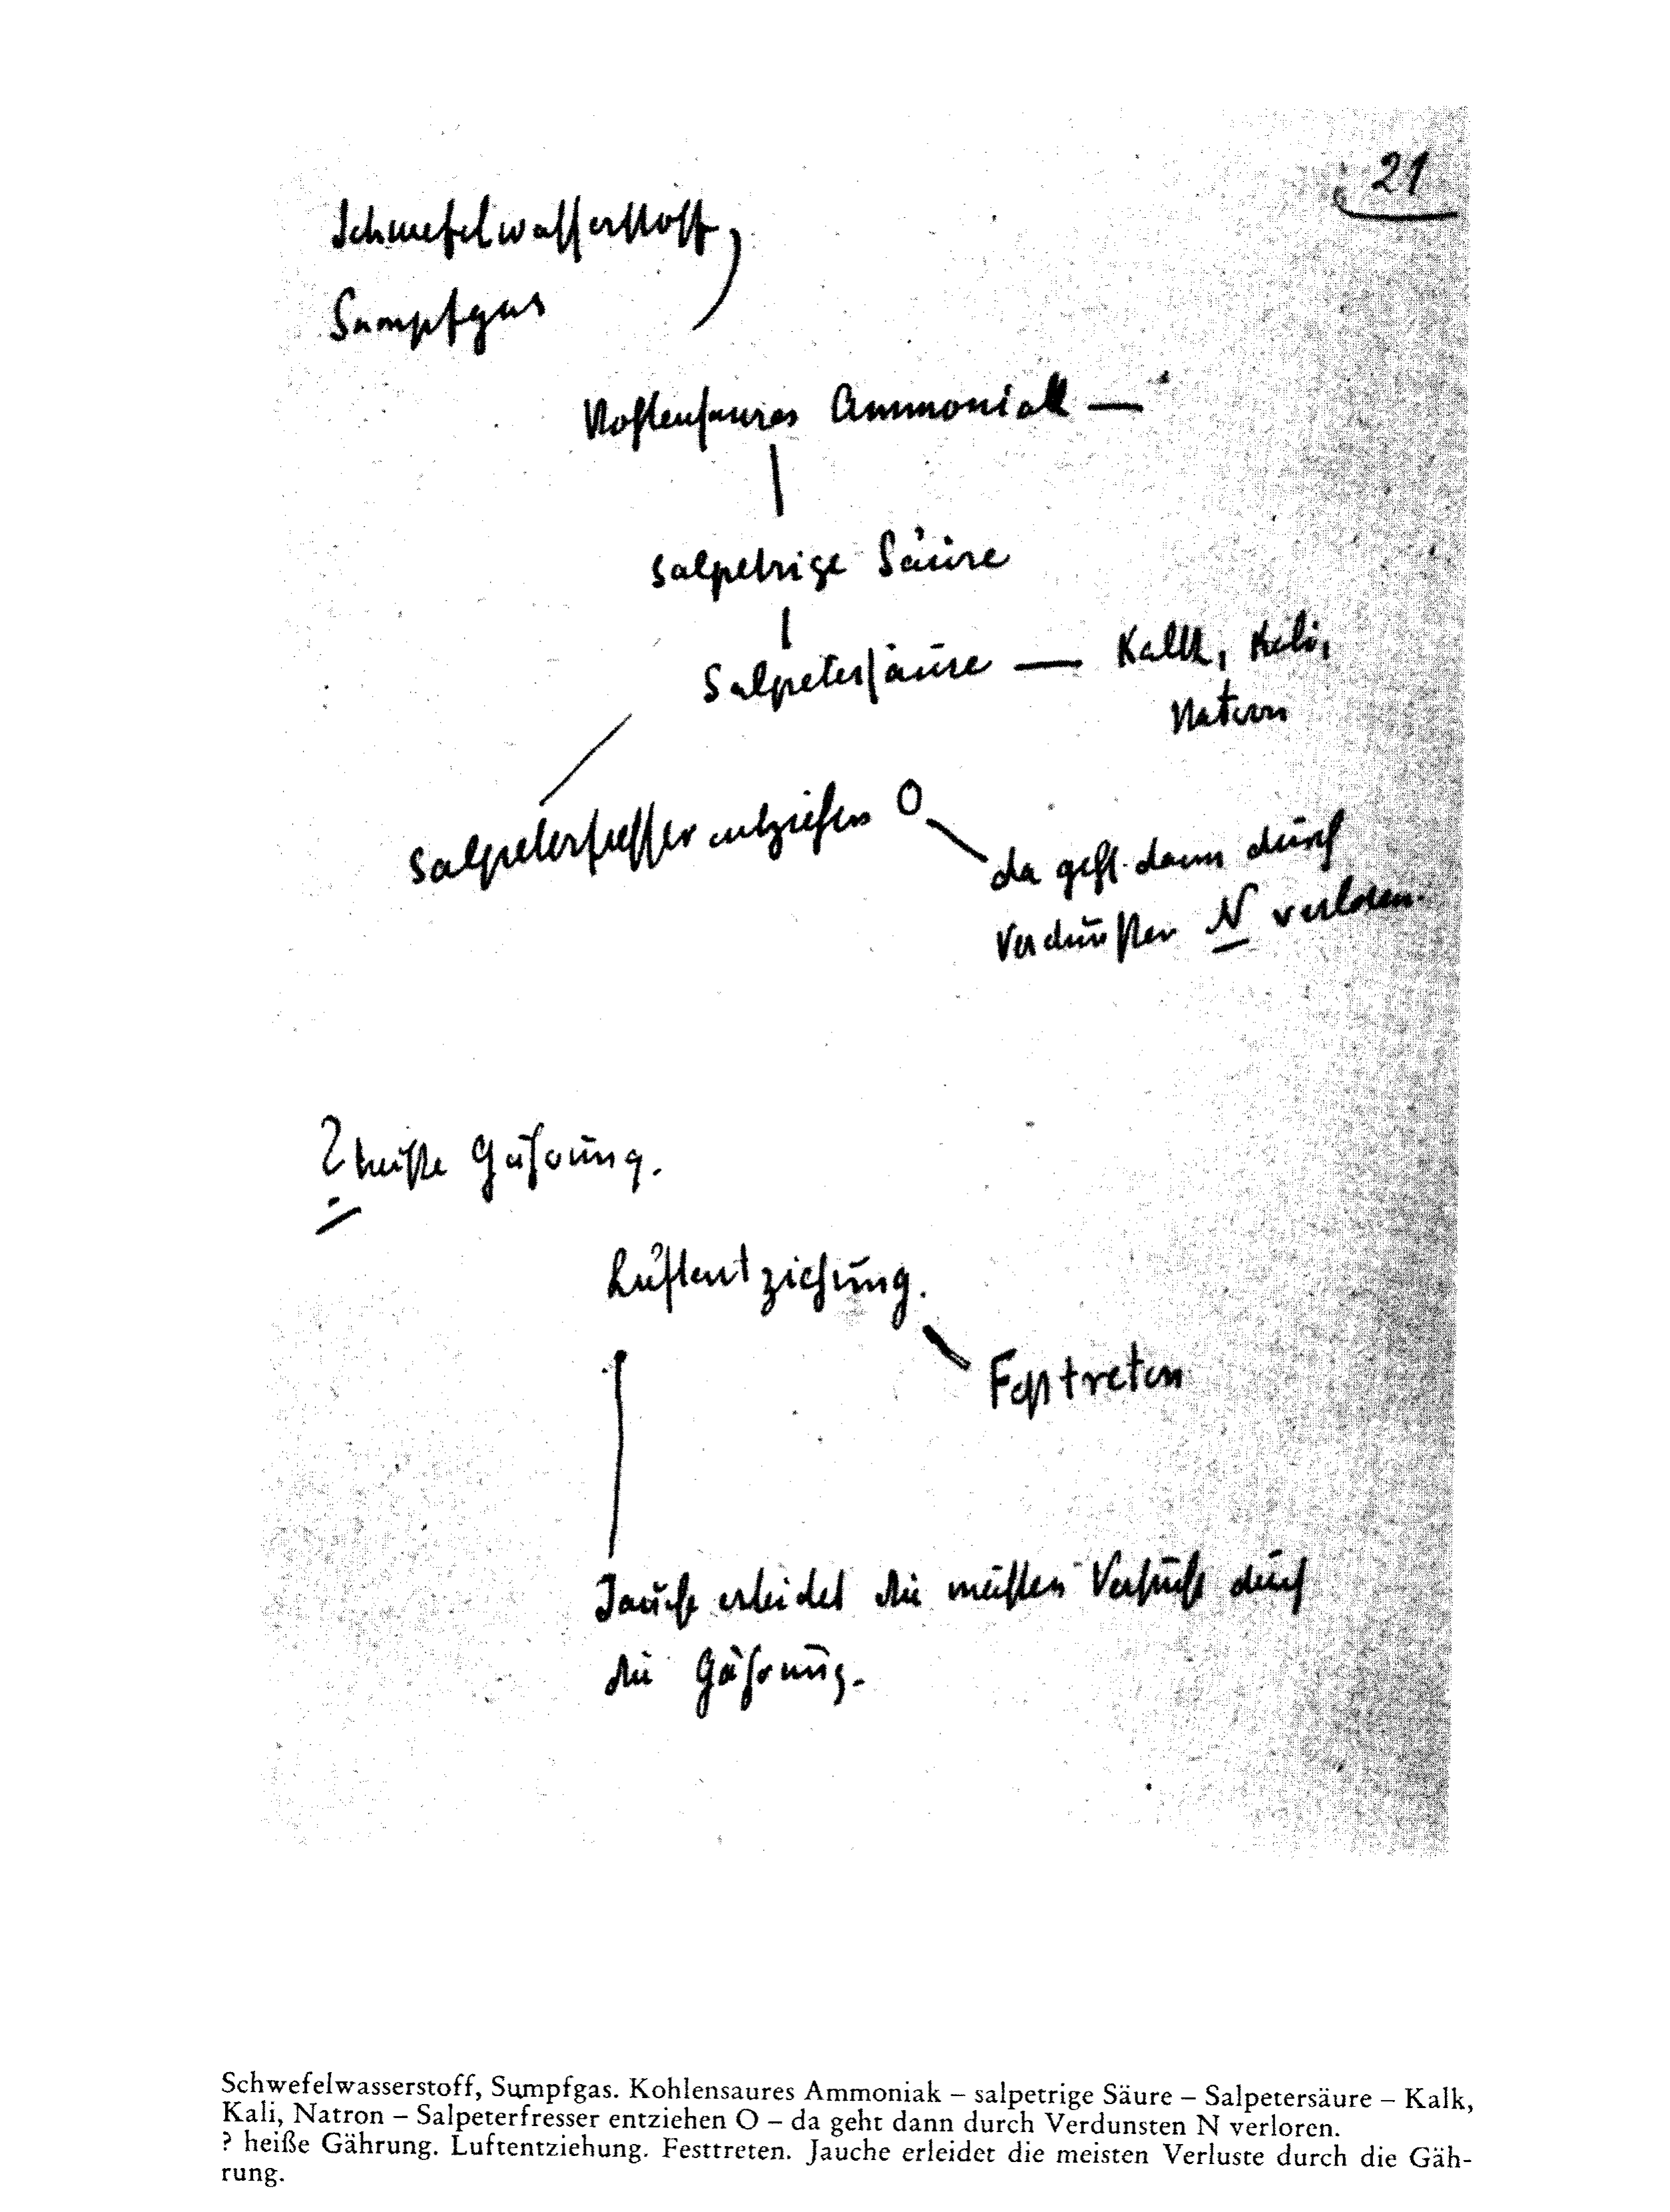 21
Schwefelwasserstoff,
Sumpfgas
Kohlensaures Ammoniak —
salpetrige Säure
Salpetersäure — Kalk, Kali,
Natron
Salpeterfresser entziehen O
da geht dann durch
Verdunsten N verloren.
? heiße Gährung.
Luftentziehung.
Festtreten
Jauche erleidet die meisten Verluste durch
die Gährung.
Schwefelwasserstoff, Sumpfgas. Kohlensaures Ammoniak – salpetrige Säure – Salpetersäure – Kalk,
Kali, Natron – Salpeterfresser entziehen O – da geht dann durch Verdunsten N verloren.
? heiße Gährung. Luftentziehung. Festtreten. Jauche erleidet die meisten Verluste durch die Gäh-
rung.